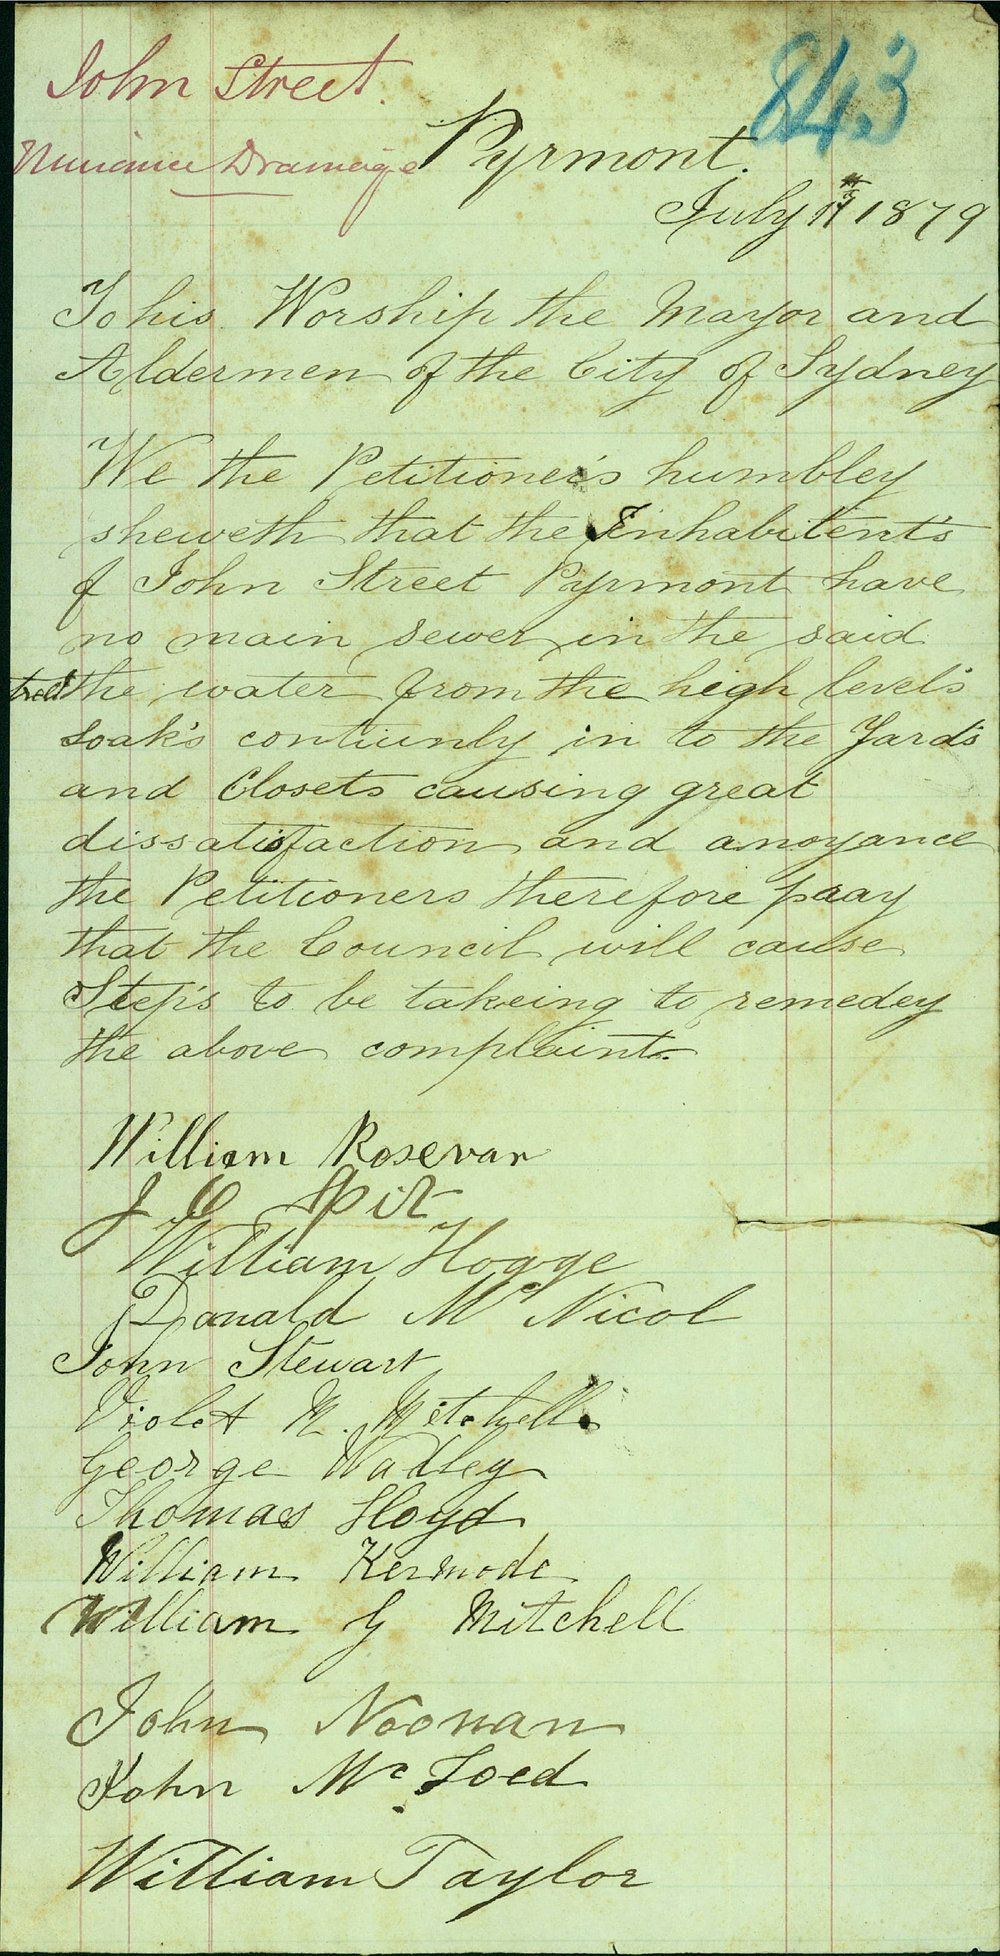 John Street.
843
Nuisance Drainage
Pyrmont.
July 17th 1879
To his Worship the Mayor and
Aldermen of the City of Sydney
We the Petitioner's humbley
sheweth that the Inhabitent's
of John Street Pyrmont have
no main sewer in the said
treet the water from the high level's
soak's contiunly in to the Yard's
and Closets causing great
dissatisfaction and anoyance
the Petitioners therefore pray
that the Council will cause
Step's to be takeing to remedey
the above complaint.
William Rosevar
J C
William Hogge
Donald Mc Nicol
John Stewart
Violet M. Mitchell
George Wadley
Thomas Lloyd
William Kermode
William G Mitchell
John Noonan
John Mc
William Taylor